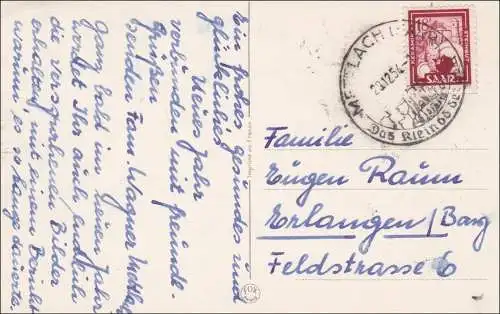 Ein frohes, gesundes und
glückliches
Neues Jahr
verbunden mit freundl.
Grüßen
senden Fam. Wagner
Ganz bald im neuen Jahr
werdet Ihr auch endlich
die versprochenen Bilder
erhalten, mit einem
warum es so lange dauerte.
METTLACH
29.12.54
Das Kleinod
KERAMIK
STEINGUT
SAAR
Familie
Eugen Raum
Erlangen/Bay
Feldstrasse 6
FOX